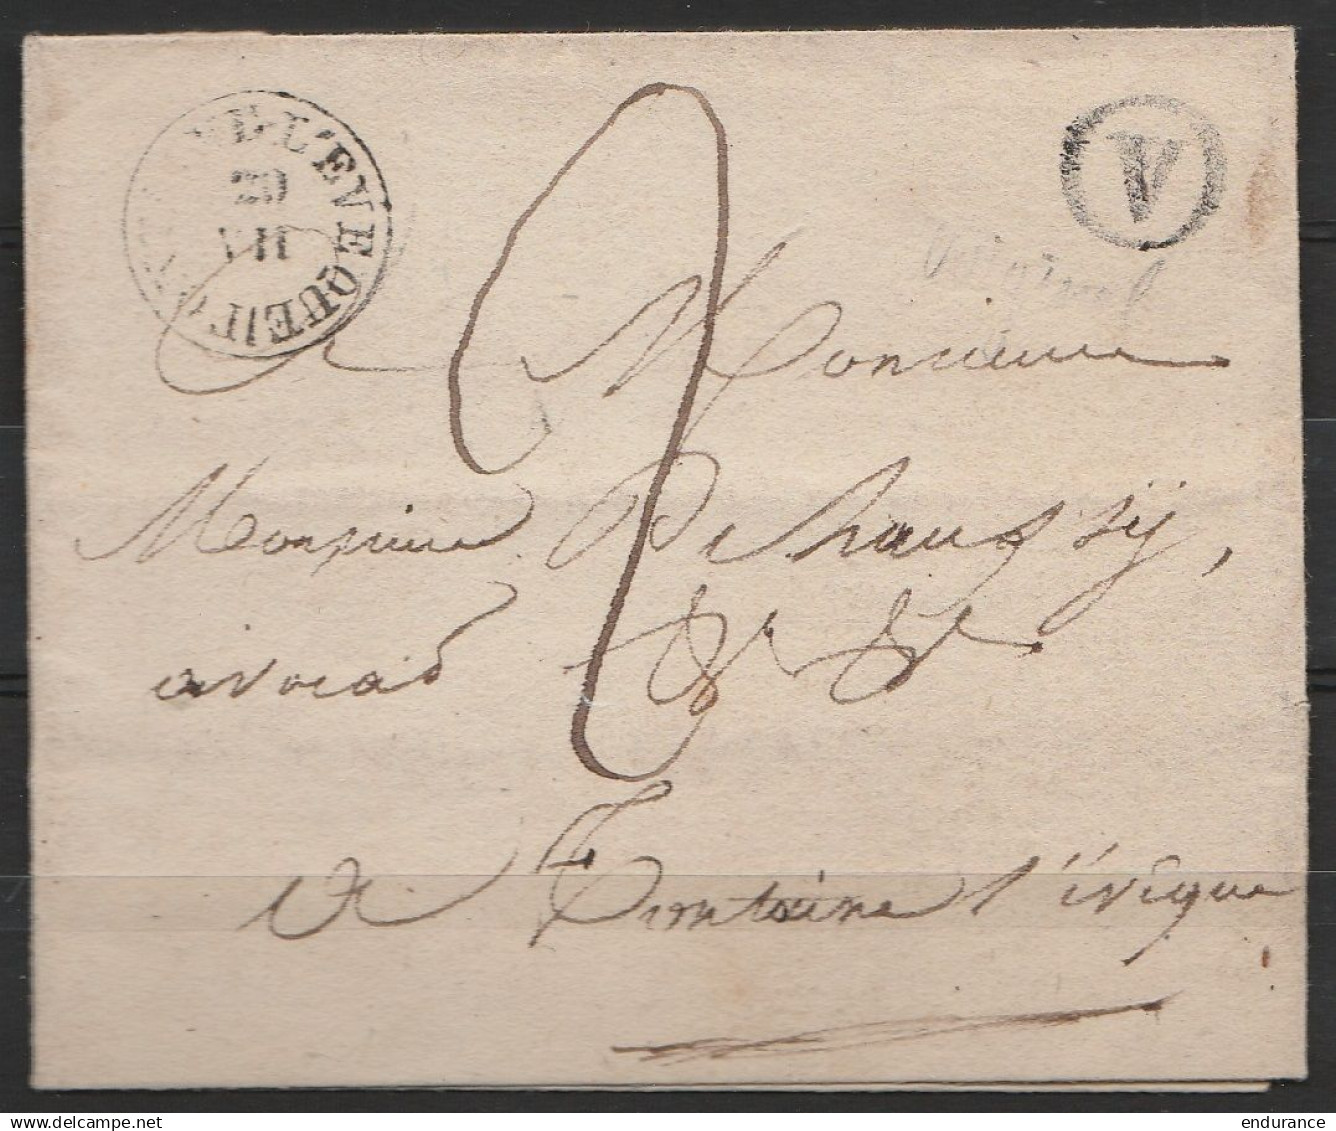 L'EVEQUE
20
VII
V
2
a Monsieur
Monsieur Dehaussÿ,
avocat
a Fontaine l'évêque
endurance